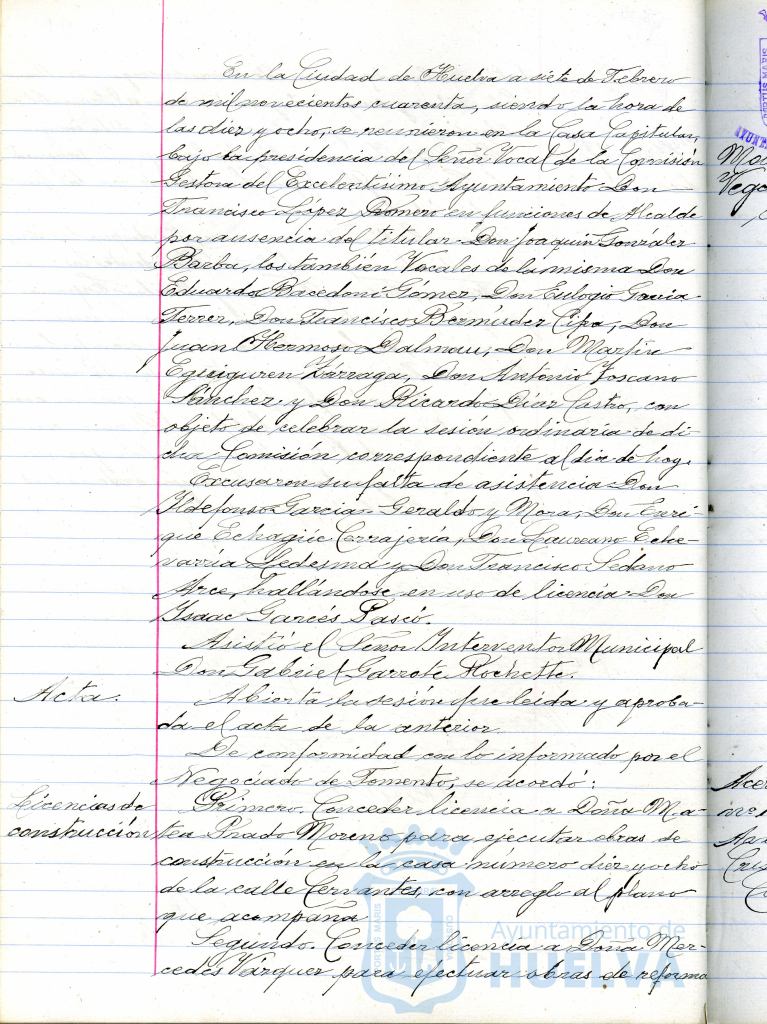 En la Ciudad de Huelva a siete de Febrero
de mil novecientos cuarenta, siendo la hora de
las diez y ocho, se reunieron en la Casa Capitular,
bajo la presidencia del Señor Vocal de la Comisión
Gestora del Excelentísimo Ayuntamiento Don
Francisco López Romero en funciones de Alcalde
por ausencia del titular Don Joaquín González
Barba, los también Vocales de la misma Don
Eduardo Bacedoni Gómez, Don Eulogio Garcia
Ferrer, Don Francisco Bermúdez Cipa, Don
Juan Hermoso Dalmau, Don Martin
Eguiguren Lizrraga, Don Antonio Toscano
Sánchez y Don Ricardo Díaz Castro, con
objeto de celebrar la sesión ordinaria de di-
cha Comisión correspondiente al día de hoy.
Excusaron su falta de asistencia Don
Ildefonso Garcia-Geraldo y Mora, Don Enri-
que Echagüe Cerrajería, Don Laureano Eche-
varría Ledesma y Don Francisco Sedano
Arce, hallándose en uso de licencia Don
Isaac Garcés Pascó.
Asistió el Señor Interventor Municipal
Don Gabriel Garrote Rochette.
Acta.
Abierta la sesión fue leída y aproba-
da el acta de la anterior.
De conformidad con lo informado por el
Negociado de Fomento, se acordó:
Licencias de
construcción
Primero. Conceder licencia a Doña Ma-
tea Prado Moreno para ejecutar obras de
construcción en la casa numero diez y ocho
de la calle Cervantes, con arreglo al plano
que acompaña
Segundo. Conceder licencia a Doña Mer-
cedes Vázquez para efectuar obras de reforma
Ayuntamiento de
HUELVA